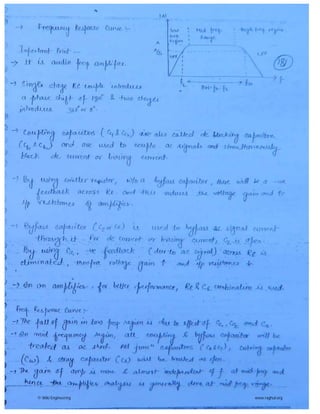 → Frequency Response Curve :-
|A|
low freq region
Mid freq Range
High freq region
181
fL
fH
f
BW = fH - fL
Important Point —
→ It is audio freq amplifier.
→ Single stage RC couple introduces
a phase shift of 180° & two stages
introduce 360° or 0°.
→ Coupling capacitors ( are also called dc blocking capacitors
and are used to couple ac signals and simultaneously
block dc current or biasing current.
→ By using emitter resistor, without bypass capacitor, there will be a -ve
feedback across RE and this reduces the voltage gain and
i/p resistance of amplifier.
→ Bypass capacitor is used to bypass ac signal current
through it. For dc current or biasing current, is open.
By using CE, -ve feedback (due to ac signal) across RE is
eliminated, therefore voltage gain ↑ and i/p resistance
→ In an amplifier, for better performance, RE & CE combination is used.
Freq. Response Curve :-
→ The fall of gain in low freq region is due to effect of
→ In mid frequency region, all coupling & bypass capacitor will be
treated as ac short. All junⁿ capacitors wiring capacitor
(Cw) & stray capacitor (Cs) will be treated as open.
→ The gain of amp is max & almost independent of f at mid freq and
hence the amplifier analysis is generally done at mid freq range.
© Wiki Engineering
www.raghul.org